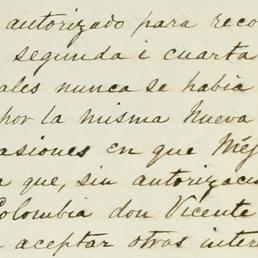 autorizado para reco
segunda i cuarta
ales nunca se habia
por la misma Nueva
asiones en que Méj
a que, sin autorizaci
Colombia don Vicente
aceptar otras inter